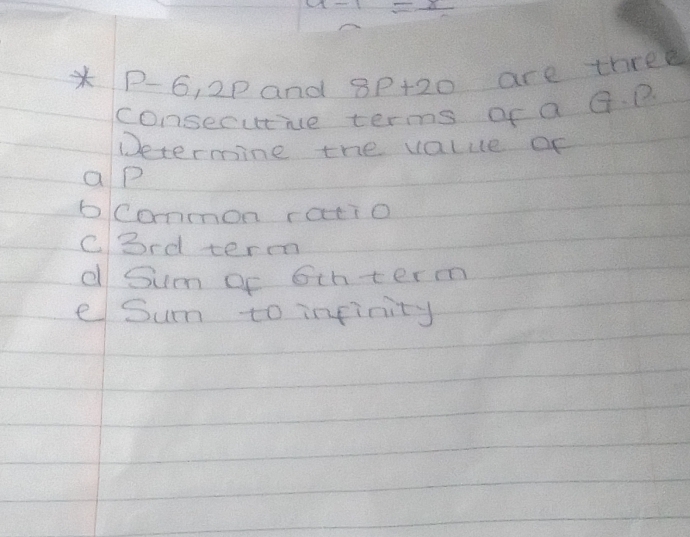 * P-6, 2P and 8P+20 are three
consecutive terms of a G.P.
Determine the value of
a P
b Common ratio
c 3rd term
d Sum of 6th term
e Sum to infinity